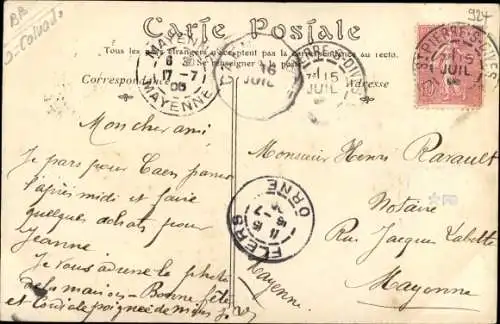 BB
D-Calvados
924
Carte Postale
Tous les pays étrangers n'acceptent pas la correspondance au recto.
Se renseigner à la poste
Correspondance
Adresse
MAYENNE
17-7
05
MAYENNE
16
JUIL
ST PIERRE-S-DIVES
15
JUIL
ST PIERRE-S-DIVES
15
JUIL
Mon cher ami
Je pars pour Caen passer
l'après midi et faire
quelques achats pour
Jeanne
Je vous adresse la photo
des maisons - Bonne fête
et cordiale poignée de mains
Monsieur Henri Ravault
Notaire
Rue Jacques Labitte
Mayonne
Mayenne
FLERS
16-7
ORNE